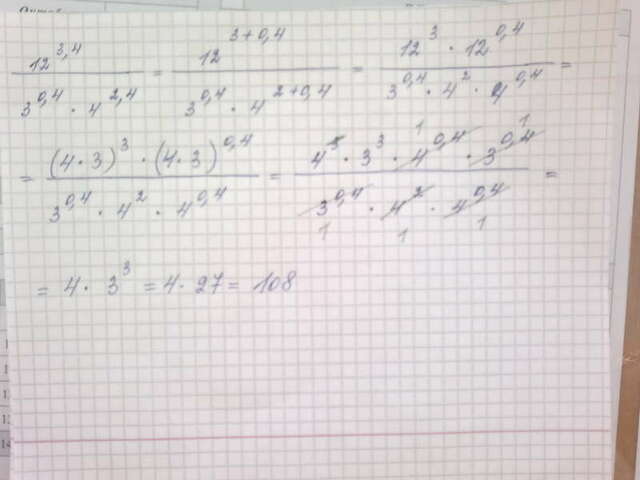 12^3,4 / (3^0,4 · 4^2,4) = 12^3+0,4 / (3^0,4 · 4^2+0,4) = 12^3 · 12^0,4 / (3^0,4 · 4^2 · 4^0,4) =
= (4·3)^3 · (4·3)^0,4 / (3^0,4 · 4^2 · 4^0,4) = 4^3 · 3^3 · 4^0,4 1 · 3^0,4 1 / (3^0,4 1 · 4^2 1 · 4^0,4 1) =
= 4 · 3^3 = 4 · 27 = 108